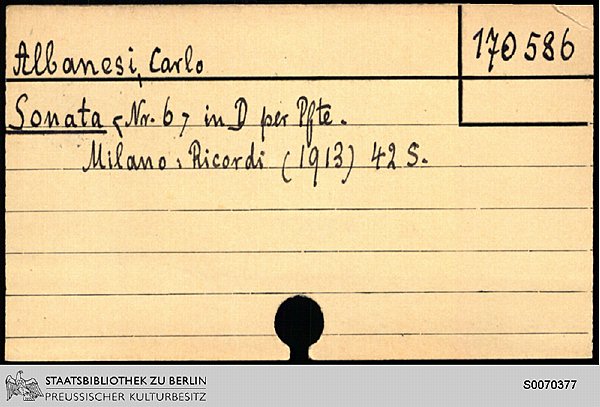 Albanesi, Carlo
170 586
Sonata <Nr. 6> in D per Pfte.
Milano: Ricordi (1913) 42 S.
STAATSBIBLIOTHEK ZU BERLIN
PREUSSISCHER KULTURBESITZ
S0070377